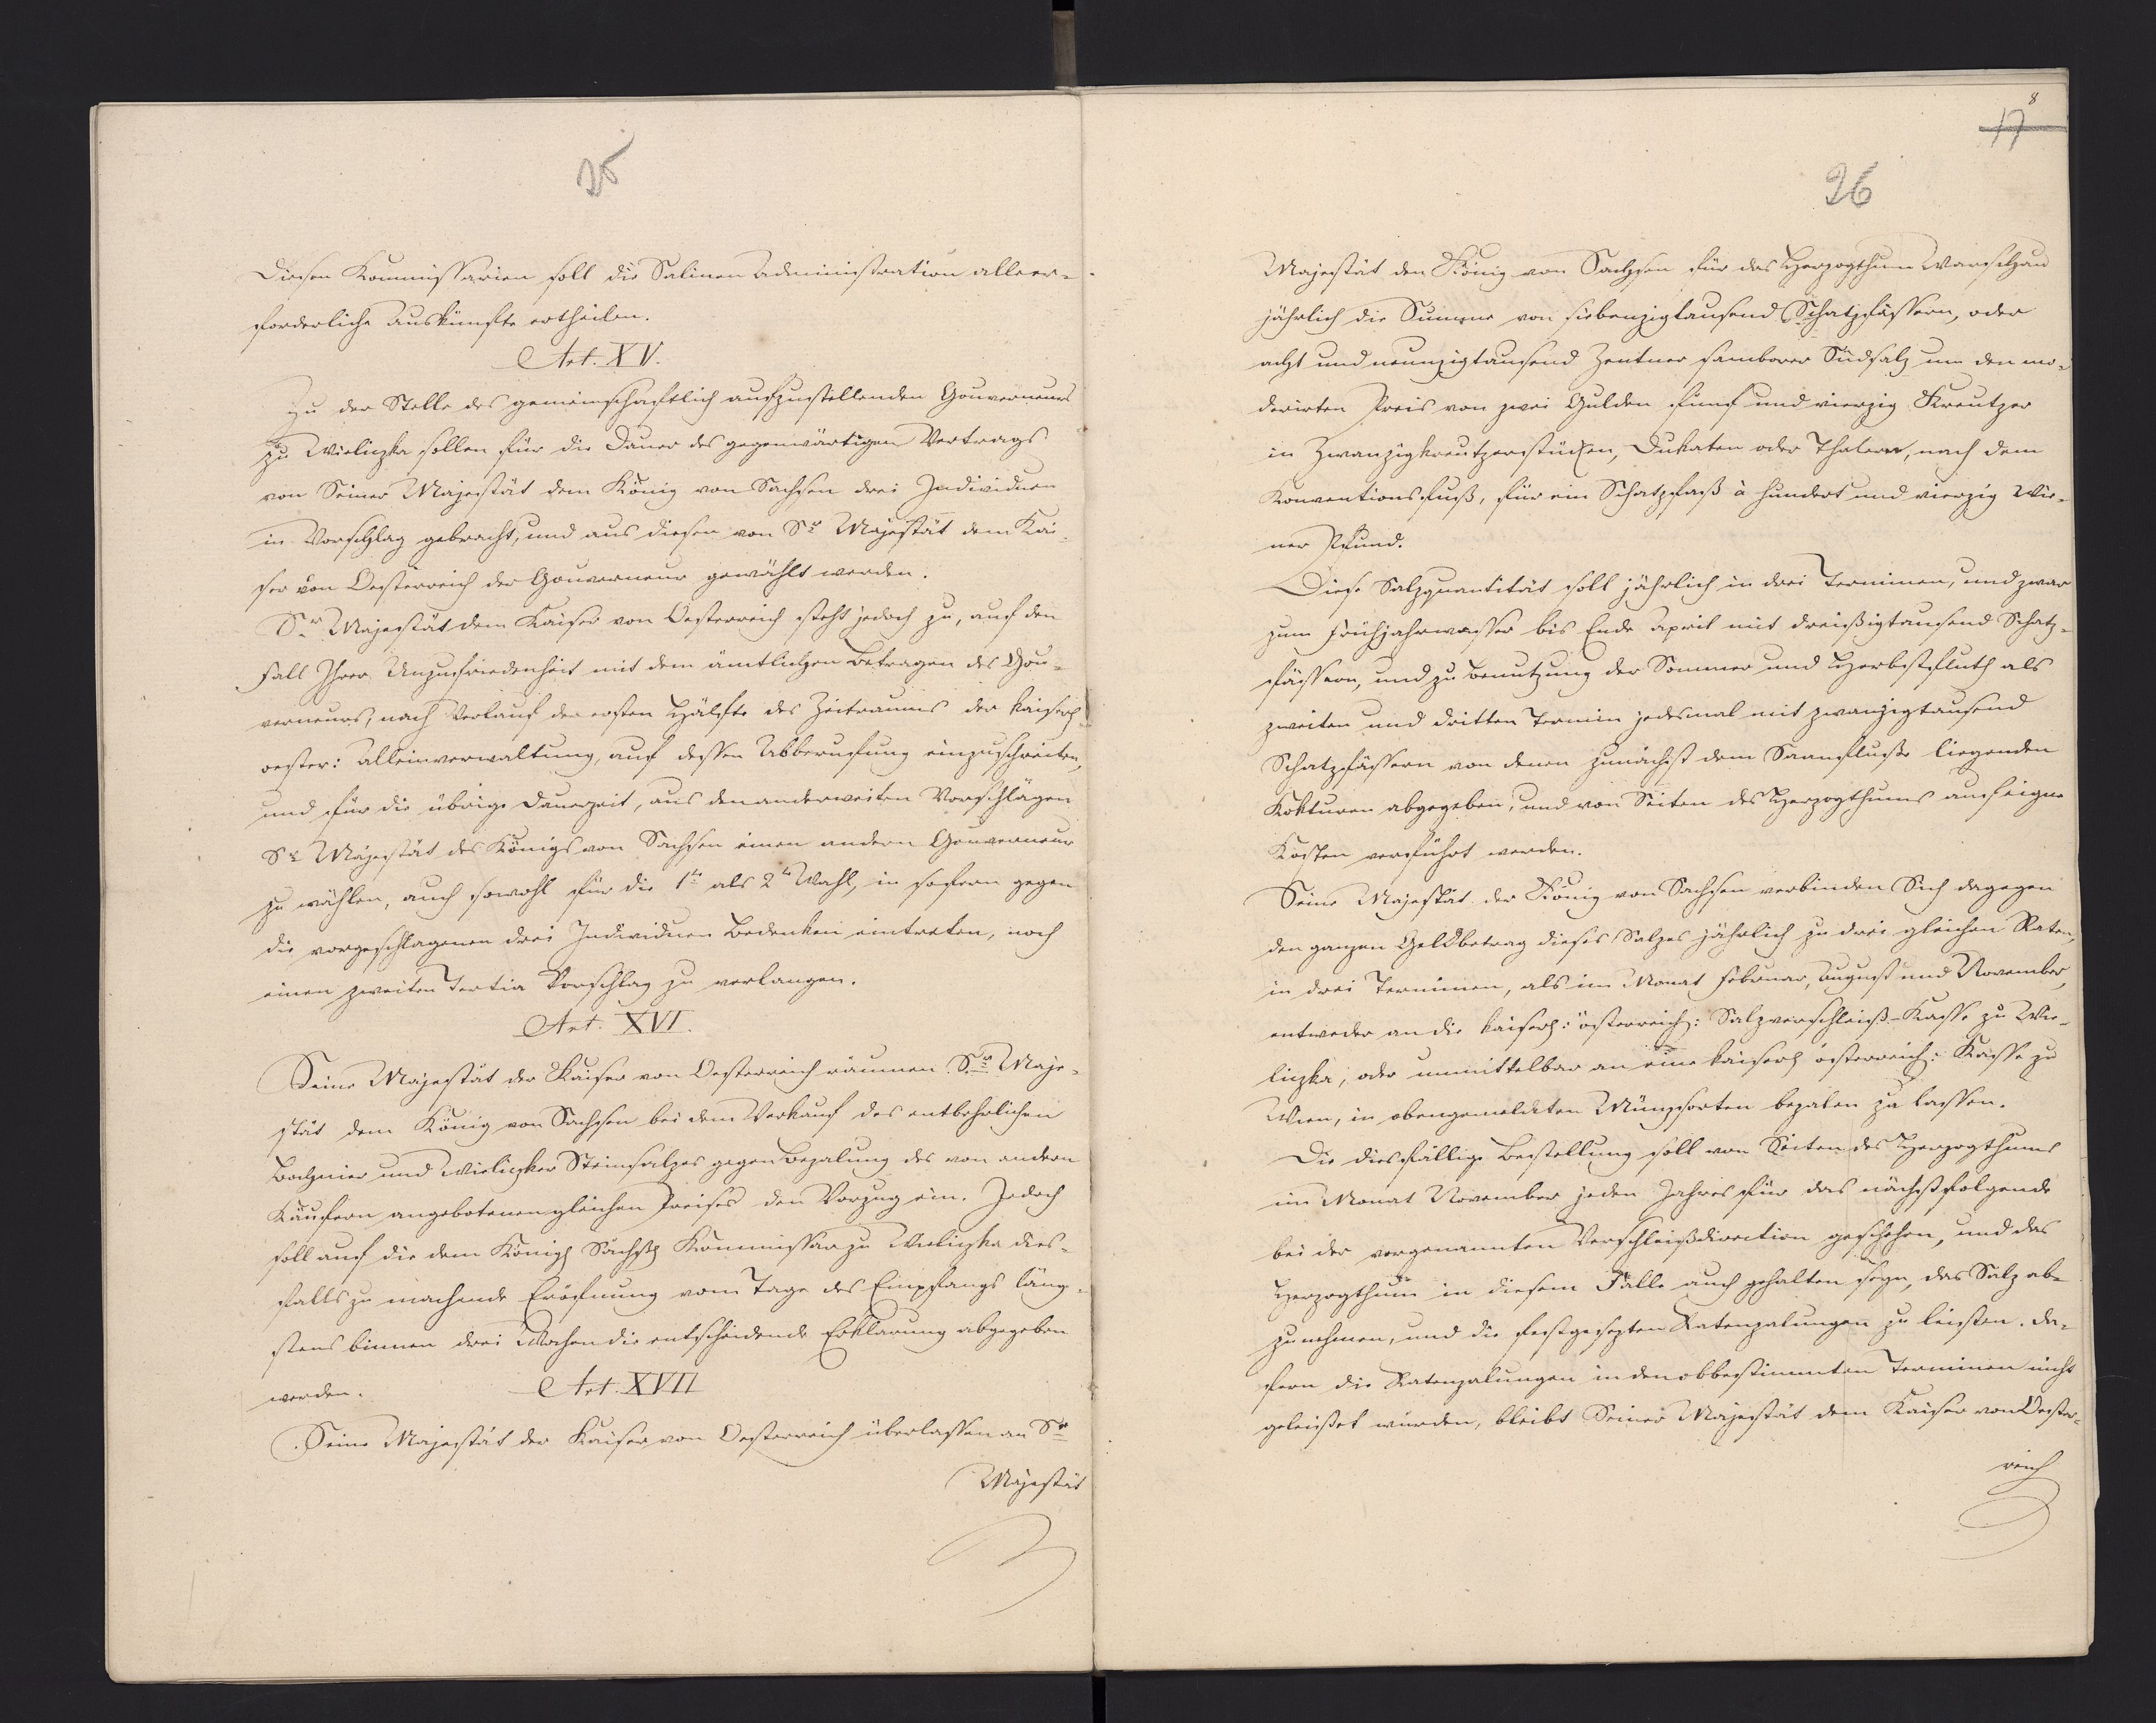 25
Diesen Kommissarien soll die Salinen Administration alle er-
forderliche Auskünfte ertheilen.
Art. XV.
Zu der Stelle des gemeinschaftlich aufzustellenden Gouverneurs
zu Wieliczka sollen für die Dauer des gegenwärtigen Vertrags
von Seiner Majestät dem König von Sachsen drei Individuen
in Vorschlag gebracht, und aus diesen von Sr Majestät dem Kai-
ser von Oesterreich der Gouverneur gewählt werden.
Sr Majestät dem Kaiser von Oesterreich steht jedoch zu, auf den
Fall Ihrer Unzufriedenheit mit dem ämtlichen Betragen des Gou-
verneurs, nach Verlauf der ersten Hälfte des Zeitraums der kaiserl.
oester: Alleinverwaltung, auf dessen Abberufung einzuschreiten,
und für die übrige Dauerzeit, aus den anderweiten Vorschlägen
Sr Majestät des Königs von Sachsen einen andern Gouverneur
zu wählen, auch sowohl für die 1te als 2te Wahl, in sofern gegen
die vorgeschlagenen drei Individuen Bedenken eintreten, noch
einen zweiten Tertia Vorschlag zu verlangen.
Art. XVI.
Seine Majestät der Kaiser von Oesterreich räumen Sr Maje-
stät dem König von Sachsen bei dem Verkauf des entbehrlichen
Bochnier und Wieliczker Steinsalzes gegen Bezalung des von andern
Käufern angebotenen gleichen Preises den Vorzug ein. Jedoch
soll auf die dem Königl Sächßl Kommissar zu Wieliczka dies-
falls zu machende Eröfnung vom Tage des Empfangs läng-
stens binnen drei Wochen die entscheidende Erklärung abgegeben
werden.
Art. XVII
Seine Majestät der Kaiser von Oesterreich überlassen an Sr
Majestät
8
17
26
Majestät den König von Sachsen für das Herzogthum Warschau
jährlich die Summe von siebenzigtausend Schatzfässern, oder
acht und neunzigtausend Zentner samborer Südsalz um den mo-
derirten Preis von zwei Gulden fünf und vierzig Kreutzer
in Zwanzigkreutzerstücken, Dukaten oder Thalern, nach dem
Konventionsfuß, für ein Schatzfaß à hundert und vierzig Wie-
ner Pfund.
Diese Salzquantität soll jährlich in drei Terminen, und zwar
zum Frühjahrwasser bis Ende April mit dreißigtausend Schatz-
fässern, und zu Benutzung der Sommer und Herbstfluth als
zweiten und dritten Termin jedesmal mit zwanzigtausend
Schatzfässern von denen zunächst dem Saanflusse liegenden
Kokturen abgegeben, und von Seiten des Herzogthums auf eigne
Kosten verführt werden.
Seine Majestät der König von Sachsen verbinden Sich dagegen
den ganzen Geldbetrag dieses Salzes jährlich zu drei gleichen Raten,
in drei Terminen, als im Monat Februar, August und November,
entweder an die kaiserl: österreich: Salzverschleiß-Kasse zu Wie-
liczka, oder unmittelbar an eine kaiserl österreich: Kasse zu
Wien, in obengemeldeten Münzsorten bezalen zu lassen.
Die diesfällige Bestellung soll von Seiten des Herzogthums
im Monat November jeden Jahres für das nächstfolgende
bei der vorgenannten Verschleißdirection geschehen, und das
Herzogthum in diesem Falle auch gehalten seyn, das Salz ab-
zunehmen, und die festgesezten Ratenzalungen zu leisten. Da-
fern die Ratenzalungen in den obbestimmten Terminen nicht
geleistet würden, bleibt Seiner Majestät dem Kaiser von Oester-
reich